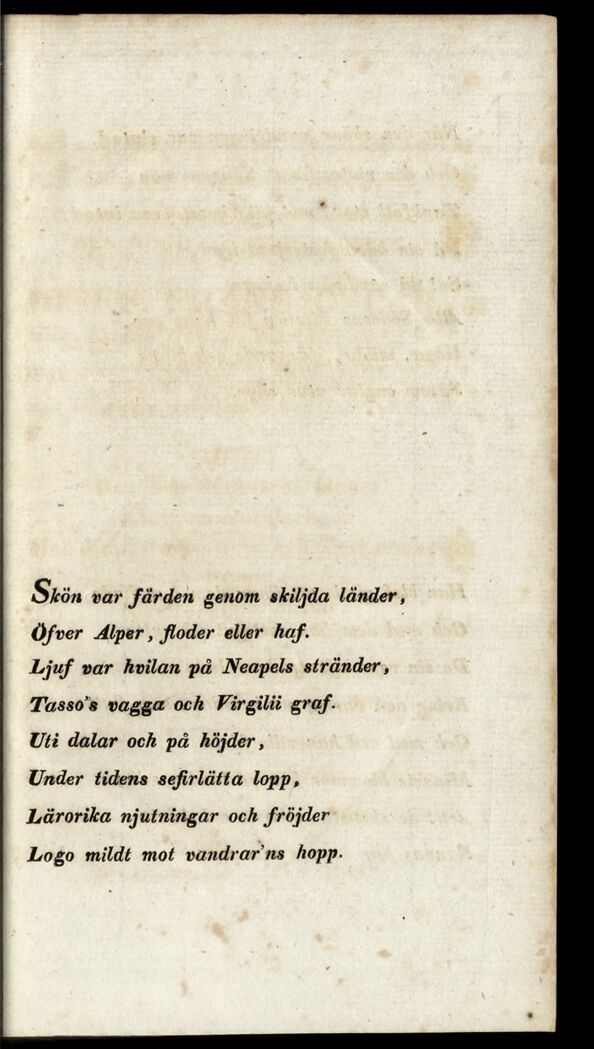 Skön var färden genom skiljda länder,
Öfver Alper, floder eller haf.
Ljuf var hvilan på Neapels stränder,
Tasso's vagga och Virgilii graf.
Uti dalar och på höjder,
Under tidens sefirlätta lopp,
Lärorika njutningar och fröjder
Logo mildt mot vandrar'ns hopp.